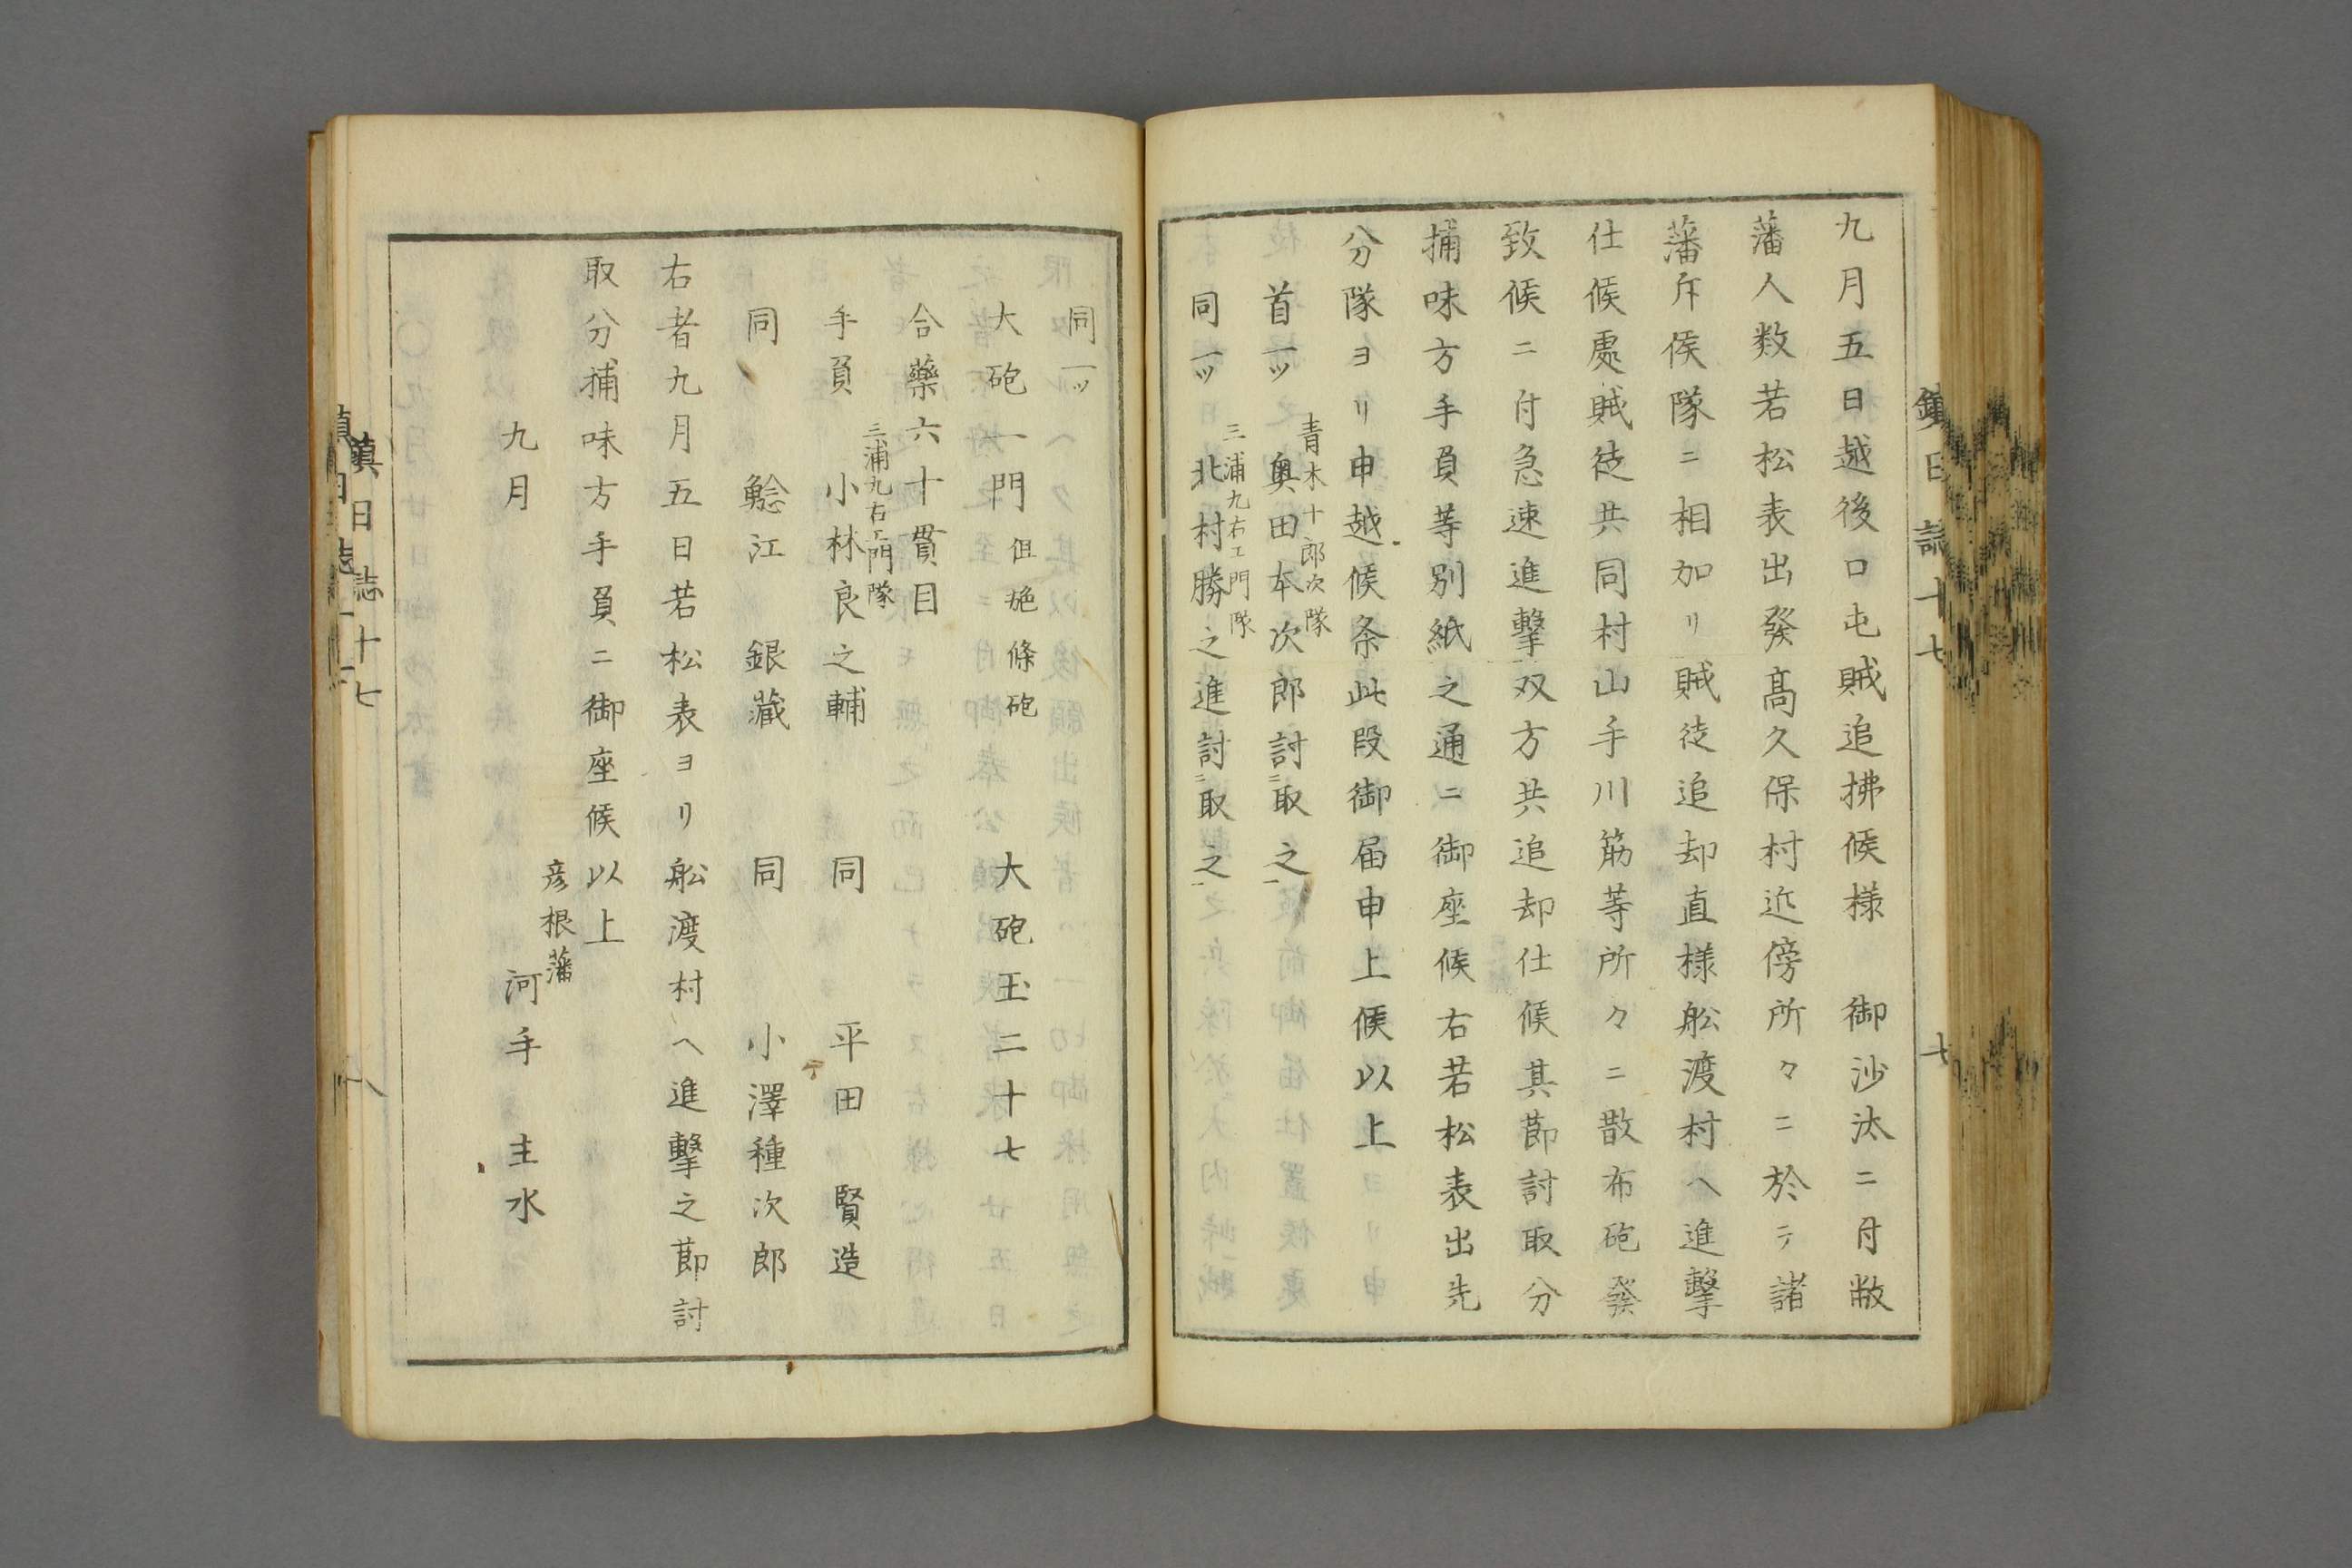 九月五日越後口屯賊追拂候様　御沙汰ニ付敝
藩人数若松表出發髙久保村近傍所々ニ於テ諸
藩斥候隊ニ相加リ賊徒追却直様舩渡村ヘ進擊
仕候處賊徒共同村山手川筋等所々ニ散布砲發
致候ニ付急速進擊双方共追却仕候其節討取分
捕味方手負等別紙之通ニ御座候右若松表出先
分隊ヨリ申越候条此段御届申上候以上
首一ツ　青木十郎次隊　奥田本次郎討ニ取之一
同一ツ　三浦九右エ門隊　北村勝之進討ニ取之一
同一ツ
大砲一門　但施條砲　大砲玉二十七
合藥六十貫目
手負　三浦九右エ門隊　小林良之輔　同　平田　賢造
同　鯰江　銀藏　同　小澤種次郎
右者九月五日若松表ヨリ舩渡村ヘ進擊之節討
取分捕味方手負ニ御座候以上
九月　彦根藩　河手　主水
鎮日誌十七
七
鎮日誌十七
八